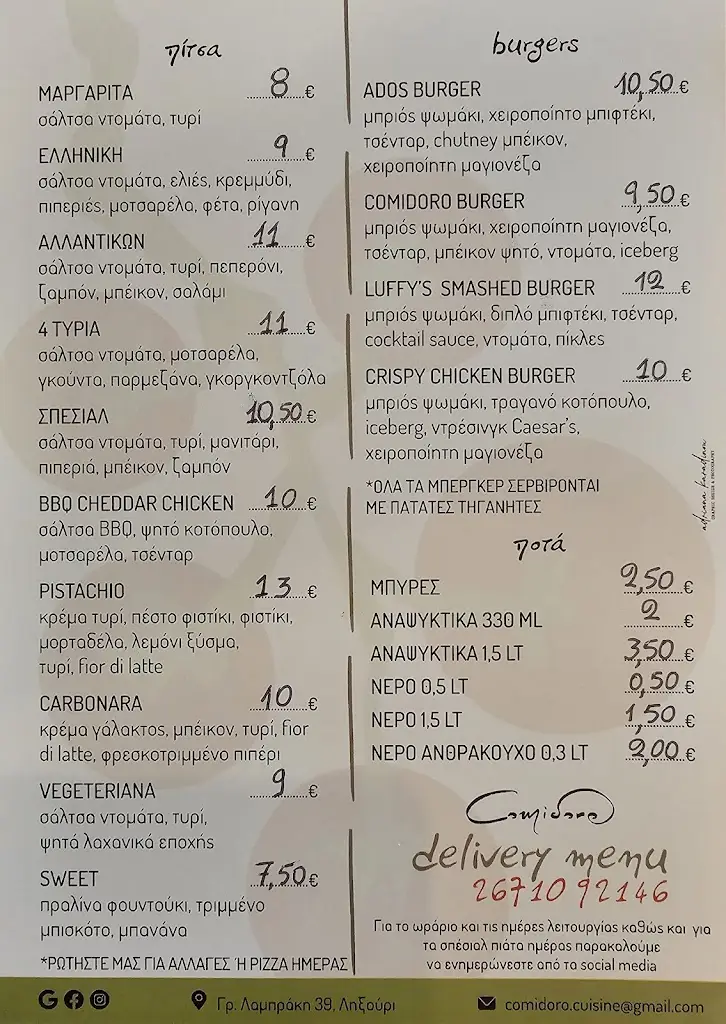 πίτσα
ΜΑΡΓΑΡΙΤΑ 8 €
σάλτσα ντομάτα, τυρί
ΕΛΛΗΝΙΚΗ 9 €
σάλτσα ντομάτα, ελιές, κρεμμύδι,
πιπεριές, μοτσαρέλα, φέτα, ρίγανη
ΑΛΛΑΝΤΙΚΩΝ 11 €
σάλτσα ντομάτα, τυρί, πεπερόνι,
ζαμπόν, μπέικον, σαλάμι
4 ΤΥΡΙΑ 11 €
σάλτσα ντομάτα, μοτσαρέλα,
γκούντα, παρμεζάνα, γκοργκοντζόλα
ΣΠΕΣΙΑΛ 10,50 €
σάλτσα ντομάτα, τυρί, μανιτάρι,
πιπεριά, μπέικον, ζαμπόν
BBQ CHEDDAR CHICKEN 10 €
σάλτσα BBQ, ψητό κοτόπουλο,
μοτσαρέλα, τσένταρ
PISTACHIO 13 €
κρέμα τυρί, πέστο φιστίκι, φιστίκι,
μορταδέλα, λεμόνι ξύσμα,
τυρί, fior di latte
CARBONARA 10 €
κρέμα γάλακτος, μπέικον, τυρί, fior
di latte, φρεσκοτριμμένο πιπέρι
VEGETERIANA 9 €
σάλτσα ντομάτα, τυρί,
ψητά λαχανικά εποχής
SWEET 7,50 €
πραλίνα φουντούκι, τριμμένο
μπισκότο, μπανάνα
*ΡΩΤΗΣΤΕ ΜΑΣ ΓΙΑ ΑΛΛΑΓΕΣ Ή PIZZA ΗΜΕΡΑΣ
burgers
ADOS BURGER 10,50 €
μπριός ψωμάκι, χειροποίητο μπιφτέκι,
τσένταρ, chutney μπέικον,
χειροποίητη μαγιονέζα
COMIDORO BURGER 9,50 €
μπριός ψωμάκι, χειροποίητη μαγιονέζα,
τσένταρ, μπέικον ψητό, ντομάτα, iceberg
LUFFY'S SMASHED BURGER 12 €
μπριός ψωμάκι, διπλό μπιφτέκι, τσένταρ,
cocktail sauce, ντομάτα, πίκλες
CRISPY CHICKEN BURGER 10 €
μπριός ψωμάκι, τραγανό κοτόπουλο,
iceberg, ντρέσινγκ Caesar's,
χειροποίητη μαγιονέζα
*ΟΛΑ ΤΑ ΜΠΕΡΓΚΕΡ ΣΕΡΒΙΡΟΝΤΑΙ
ΜΕ ΠΑΤΑΤΕΣ ΤΗΓΑΝΗΤΕΣ
ποτά
ΜΠΥΡΕΣ 2,50 €
ΑΝΑΨΥΚΤΙΚΑ 330 ML 2 €
ΑΝΑΨΥΚΤΙΚΑ 1,5 LT 3,50 €
ΝΕΡΟ 0,5 LT 0,50 €
ΝΕΡΟ 1,5 LT 1,50 €
ΝΕΡΟ ΑΝΘΡΑΚΟΥΧΟ 0,3 LT 2,00 €
Comidoro
delivery menu
26710 92146
Για το ωράριο και τις ημέρες λειτουργίας καθώς και για
τα σπέσιαλ πιάτα ημέρας παρακαλούμε
να ενημερώνεστε από τα social media
adriana karadimi
Γρ. Λαμπράκη 39, Ληξούρι
comidoro.cuisine@gmail.com